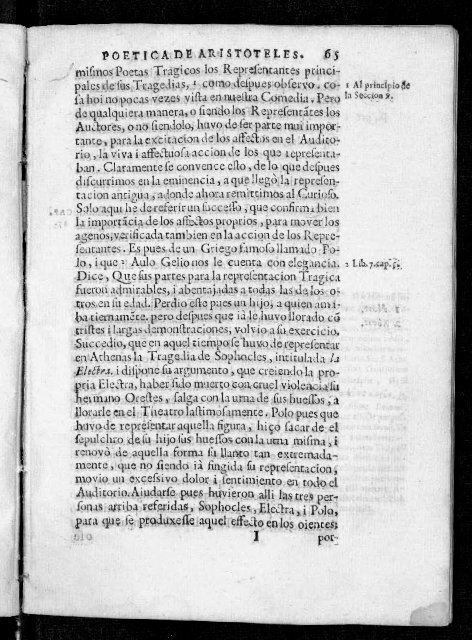 POETICA DE ARISTOTELES. 65
mismos Poetas Tragicos los Representantes princi-
pales de sus Tragedias, 1 como despues observo. co-
sa hoi no pocas vezes vista en nuestra Comedia. Pero
de qualquiera manera, o siendo los Representãtes los
Auctores, o no siendolo, huvo de ser parte mui impor-
tante, para la excitacion de los affectos en el Audito-
rio, la viva i affectuosa accion de los que representa-
ban. Claramente se convence esto, de lo que despues
discurrimos en la eminencia, a que llegò la represen-
tacion antigua, adonde ahora remittimos al Curioso.
Solo aqui he de referir un successo, que confirma bien
la importãcia de los affectos proprios, para mover los
agenos, verificada tambien en la accion de los Repre-
sentantes. Es pues de un Griego famoso llamado Po-
lo, i que 2 Aulo Gelio nos le cuenta con elegancia.
Dice, Que sus partes para la representacion Tragica
fueron admirables, i abentajadas a todas las de los o-
tros en su edad. Perdio este pues un hijo, a quien ama-
ba tiernamẽte. pero despues que ia le huvo llorado cõ
tristes i largas demonstraciones, volvio a su exercicio.
Succedio, que en aquel tiempo se huvo de representar
en Athenas la Tragedia de Sophocles, intitulada la
Electra. i dispone su argumento, que creiendo la pro-
pria Electra, haber sido muerto con cruel violencia su
hermano Orestes, salga con la urna de sus huessos, a
llorarle en el Theatro lastimosamente. Polo pues que
huvo de representar aquella figura, hiço sacar de el
sepulchro de su hijo sus huessos con la urna misma, i
renovò de aquella forma su llanto tan extremada-
mente, que no siendo ià fingida su representacion,
movio un excessivo dolor i sentimiento en todo el
Auditorio. Aiudarse pues huvieron alli las tres per-
sonas arriba referidas, Sophocles, Electra, i Polo,
para que se produxesse aquel effecto en los oientes:
I por-
1 Al principio de
la Seccion 9.
2 Lib. 7. cap. 5.